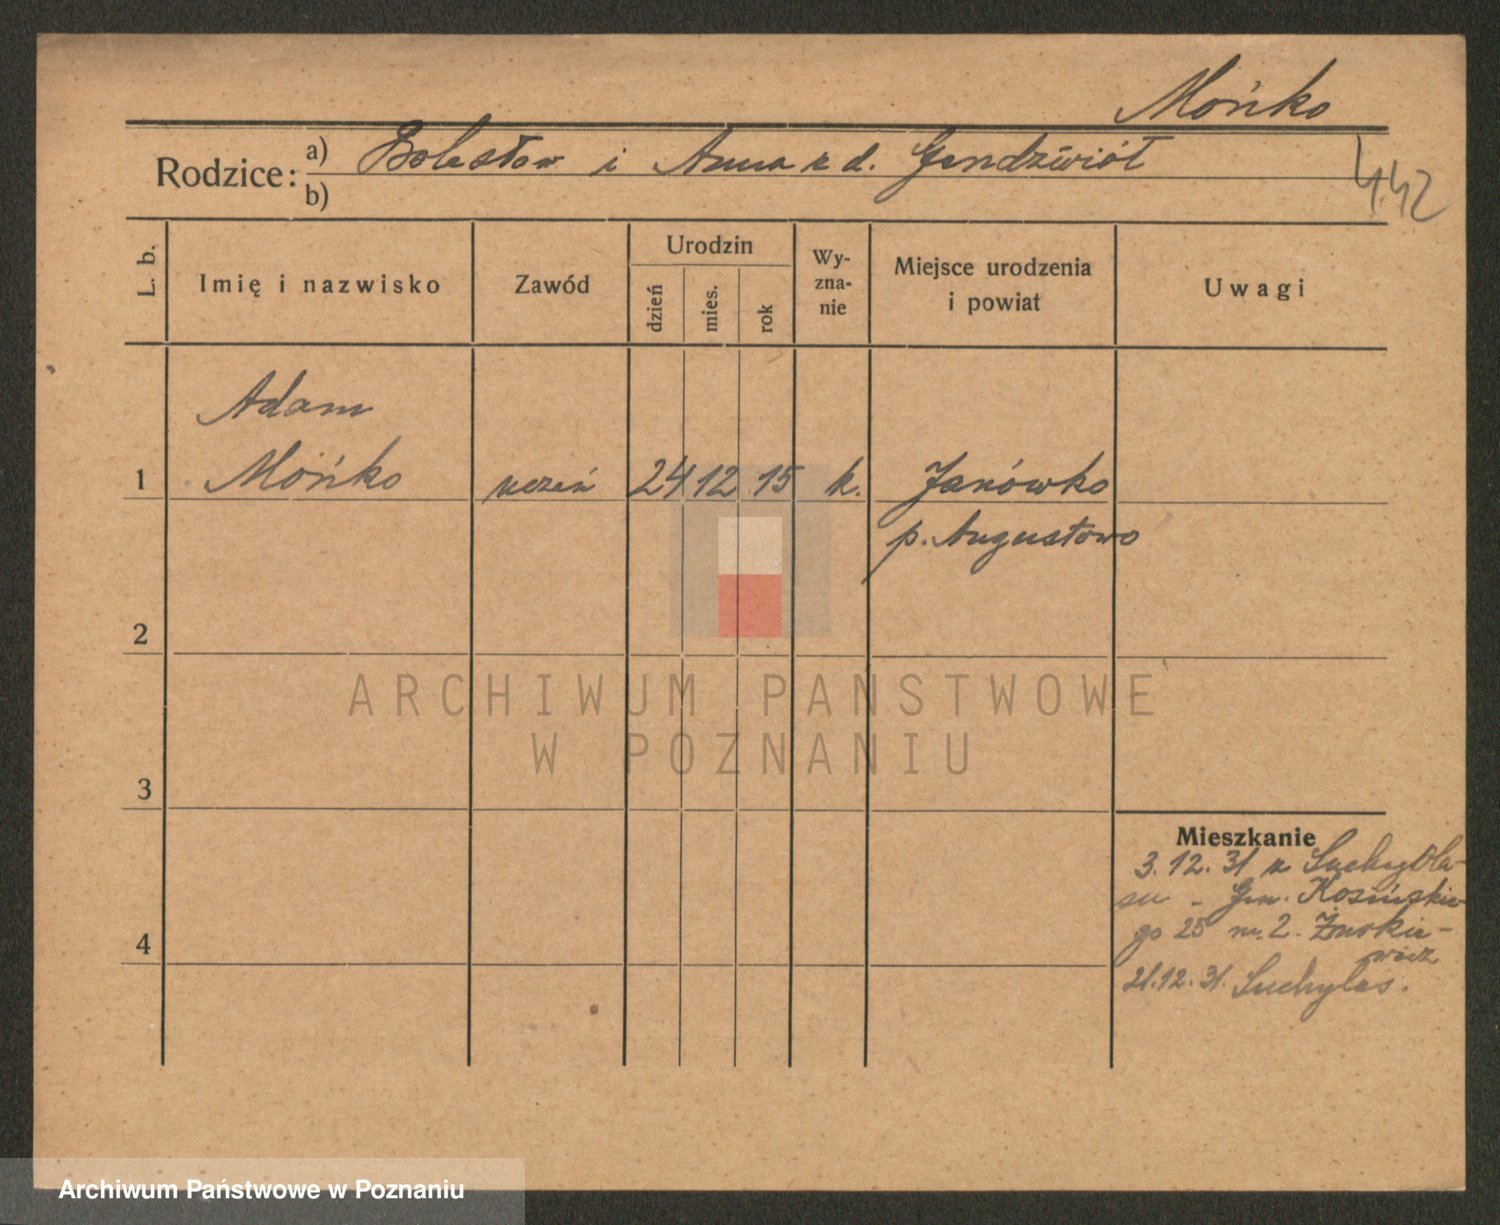 Mońko
Rodzice: a) Bolesław i Anna z d. Gendźwiół
b)
442
L. b.
Imię i nazwisko
Zawód
Urodzin
dzień
mies.
rok
Wy-
zna-
nie
Miejsce urodzenia
i powiat
Uwagi
Adam
1 Mońko uczeń 24 12 15 k. Janówko
p. Augustowo
2
ARCHIWUM PANSTWOWE
W POZNANIU
3
Mieszkanie
3.12.31 z Suchyla-
su - Gen. Kosińskie-
4 go 25 m. 2. Żmurkie-
wicz
21.12.31. Suchylas.
Archiwum Państwowe w Poznaniu